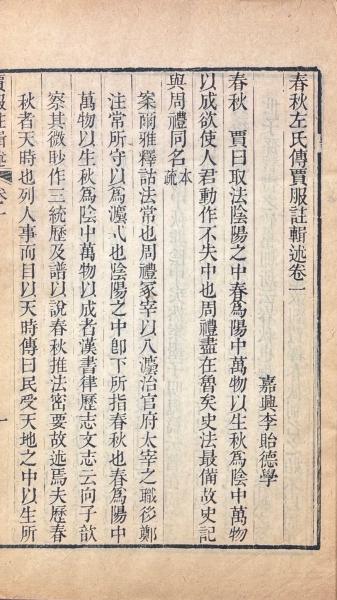 春秋左氏傳賈服註輯述卷一
嘉興李貽德學
春秋　賈曰取法陰陽之中春為陽中萬物以生秋為陰中萬物
以成欲使人君動作不失中也周禮盡在魯矣史法最備故史記
與周禮同名本疏
案爾雅釋詁法常也周禮冢宰以八灋治官府太宰之職後鄭
注常所守以為灋式也陰陽之中卽下所指春秋也春為陽中
萬物以生秋為陰中萬物以成者漢書律歷志文志云向子歆
察其微眇作三統歷及譜以說春秋推法密要故述焉夫歷春
秋者天時也列人事而目以天時傳曰民受天地之中以生所
賈服註輯述　卷一　一